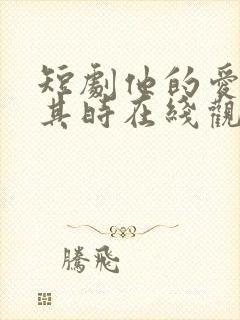 短劇他的愛
其時在綫觀
騰飛